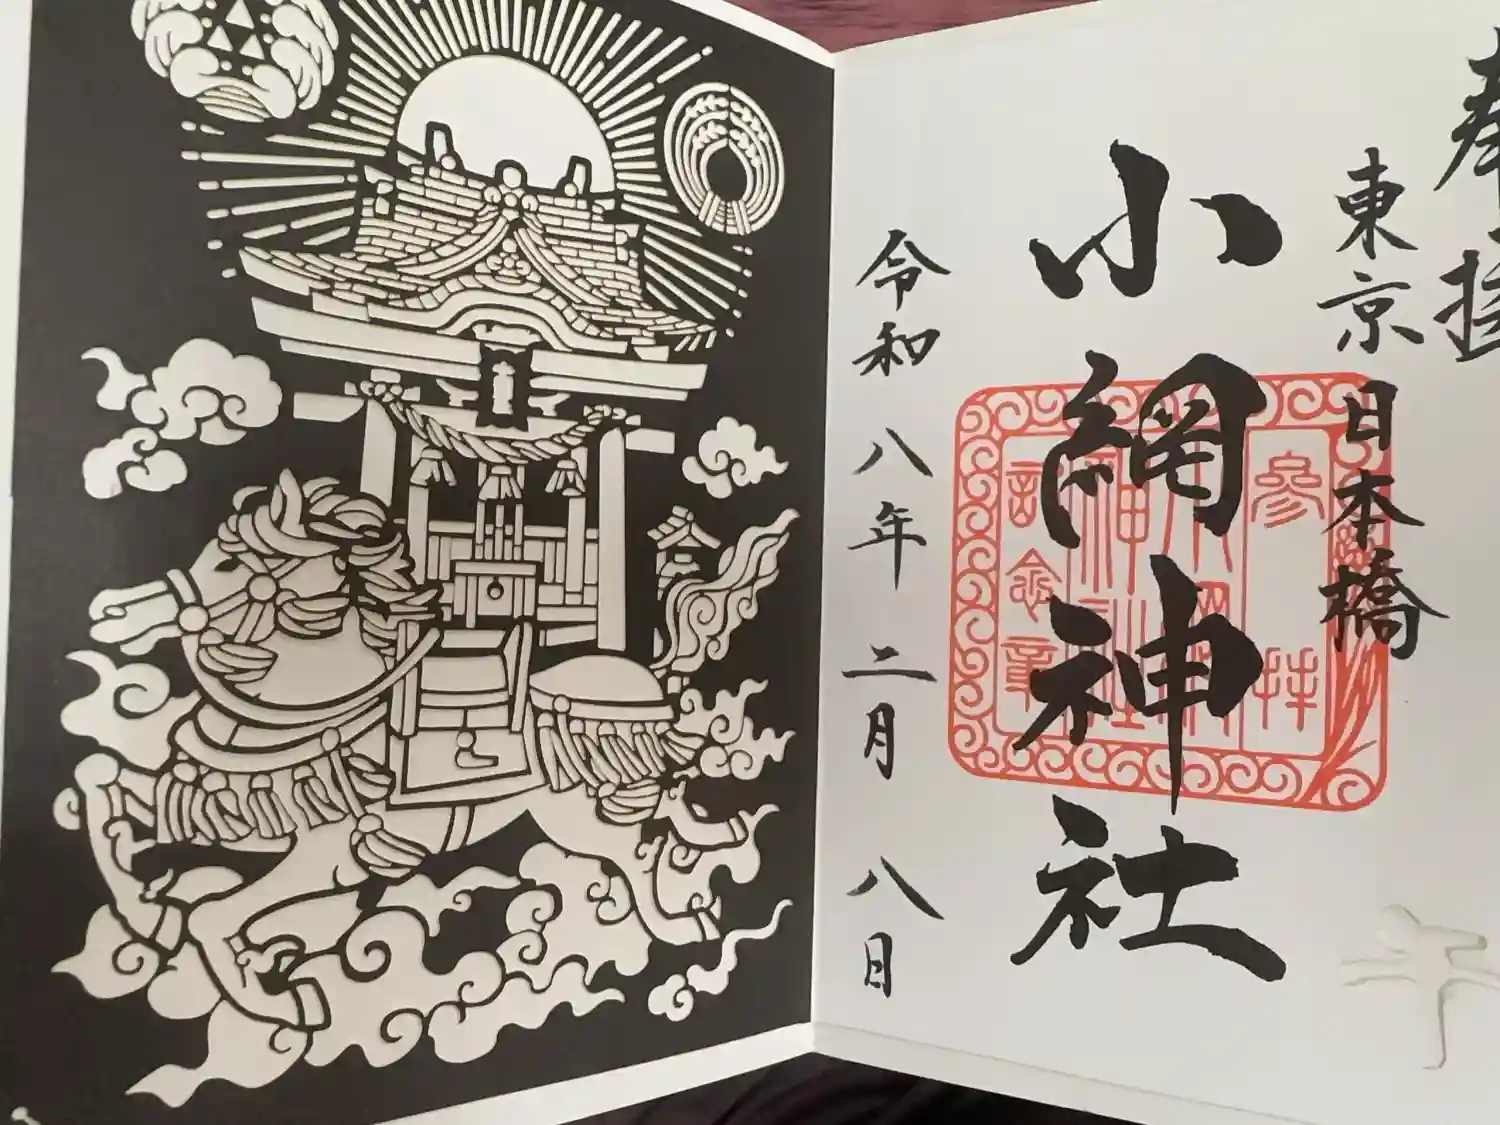 奉拝
東京
日本橋
小網神社
参拝
小網
神社
記念章
令和八年二月八日
午